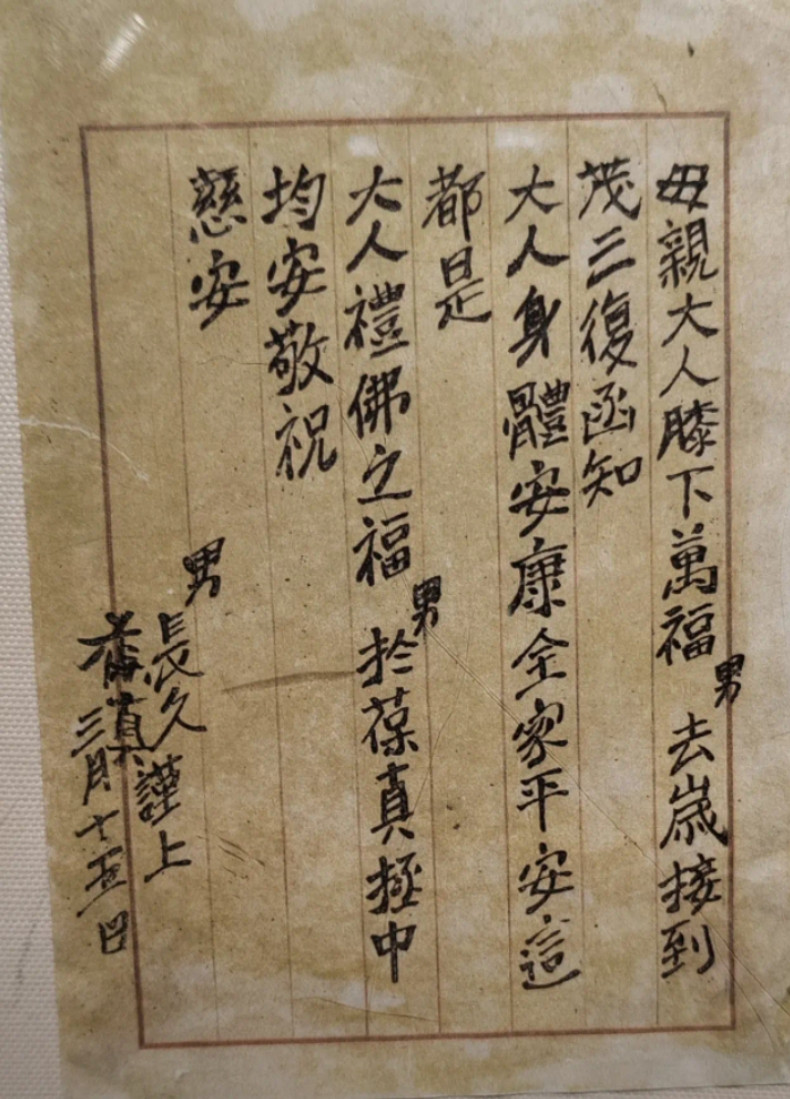 母親大人膝下萬福 男 去嵗接到
茂三復函知
大人身體安康全家平安這
都是
大人禮佛之福 男 於葆真極中
均安敬祝
慈安
男 長久 謹上
葆真
三月十五日